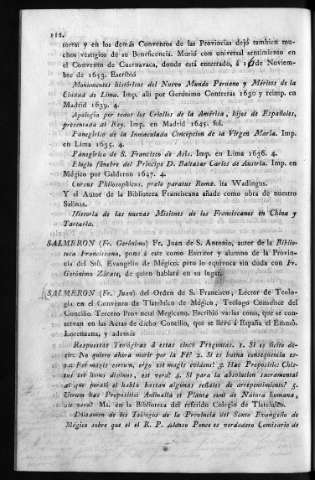 112.
torral y en los demás Conventos de las Provincias dejó tambien mu-
chos vestigios de su Beneficencia. Murió con universal sentimiento en
el Convento de Cuernavaca, donde está enterrado, á de Noviem-
bre de 1653. Escribió
Monumentos históricos del Nuevo Mundo Peruano y Méritos de la
Ciudad de Lima. Imp. allí por Gerónimo Contreras 1650 y reimp. en
Madrid 1639. 4.
Apología por todos los Criollos de la América, hijos de Españoles,
presentada al Rey. Imp. en Madrid 1645. fol.
Panegírico de la Inmaculada Concepcion de la Vírgen María. Imp.
en Lima 1635. 4.
Panegírico de S. Francisco de Asis. Imp. en Lima 1636. 4.
Elogio fúnebre del Príncipe D. Baltazar Carlos de Austria. Imp. en
Mégico por Calderon 1647. 4.
Cursus Philosophicus, prelo paratus Romæ. ita Wadingus.
Y el Autor de la Biblioteca Franciscana añade como obra de nuestro
Salinas.
Historia de las nuevas Misiones de los Franciscanos en China y
Tartaria.
SALMERON (Fr. Gerónimo) Fr. Juan de S. Antonio, autor de la Biblio-
teca Franciscana, pone á este como Escritor y alumno de la Provin-
cia del Sto. Evangelio de Mégico; pero lo equivoca sin duda con Fr.
Gerónimo Zárate, de quien hablaré en su lugar.
SALMERON (Fr. Juan) del Orden de S. Francisco, Léctor de Teolo-
gia en el Convento de Tlatelulco de Mégico, Teólogo Consultor del
Concilio Tercero Provincial Megicano. Escribió varias cosas, que se con-
servan en las Actas de dicho Concilio, que se llevó á España el Emmô.
Lorenzana, y además
Respuestas Teológicas á estas cinco Preguntas. 1. Si es lícito de-
cir: No quiero ahora morir por la Fé? 2. Si es buena consecuencia es-
ta: Fuí magis certum, ergo est magis evidens? 3. Hæc Propositio: Chis-
tus est homo divinus, est vera? 4. Si para la absolucion sacramental
de que perdió el habla bastan algunas señales de arrepentimiento? 5.
Utrum hæc Propositio: Animalia et Plantæ sunt de Natura humana,
sit vera? Ms. en la Biblioteca del referido Colegio de Tlatelulco.
Dictamen de los Teólogos de la Provincia del Santo Evangelio de
Mégico sobre que el el R. P. Alonso Ponce es verdadero Comisario de